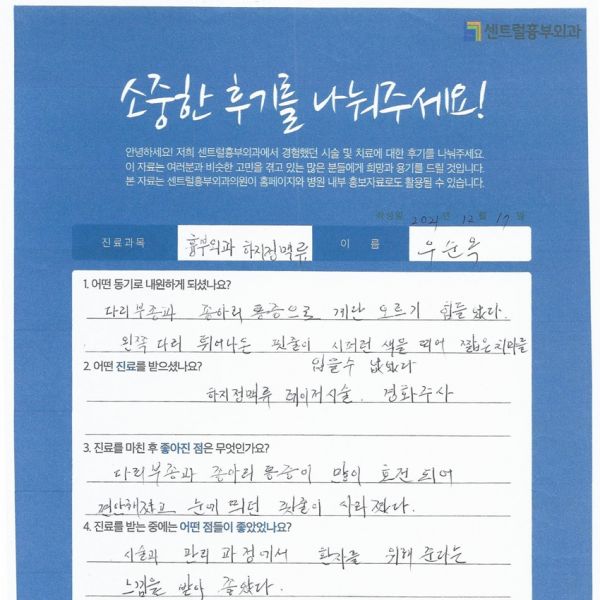 센트럴흉부외과
소중한 후기를 나눠주세요!
안녕하세요! 저희 센트럴흉부외과에서 경험했던 시술 및 치료에 대한 후기를 나눠주세요.
이 자료는 여러분과 비슷한 고민을 겪고 있는 많은 분들에게 희망과 용기를 드릴 것입니다.
본 자료는 센트럴흉부외과의원이 홈페이지와 병원 내부 홍보자료로도 활용될 수 있습니다.
작성일 2021 년 12 월 17 일
진료과목 흉부외과 하지정맥류 이 름 우순옥
1. 어떤 동기로 내원하게 되셨나요?
다리부종과 종아리 통증으로 계단 오르기 힘들었다.
왼쪽 다리 튀어나온 핏줄이 시퍼런 색을 띄어 짧은치마를
입을수 없었다
2. 어떤 진료를 받으셨나요?
하지정맥류 레이저시술. 경화주사
3. 진료를 마친 후 좋아진 점은 무엇인가요?
다리부종과 종아리 통증이 많이 호전 되어
편안해졌고 눈에 띄던 핏줄이 사라졌다.
4. 진료를 받는 중에는 어떤 점들이 좋았었나요?
시술과 관리 과정에서 환자를 위해 준다는
느낌을 받아 좋았다.